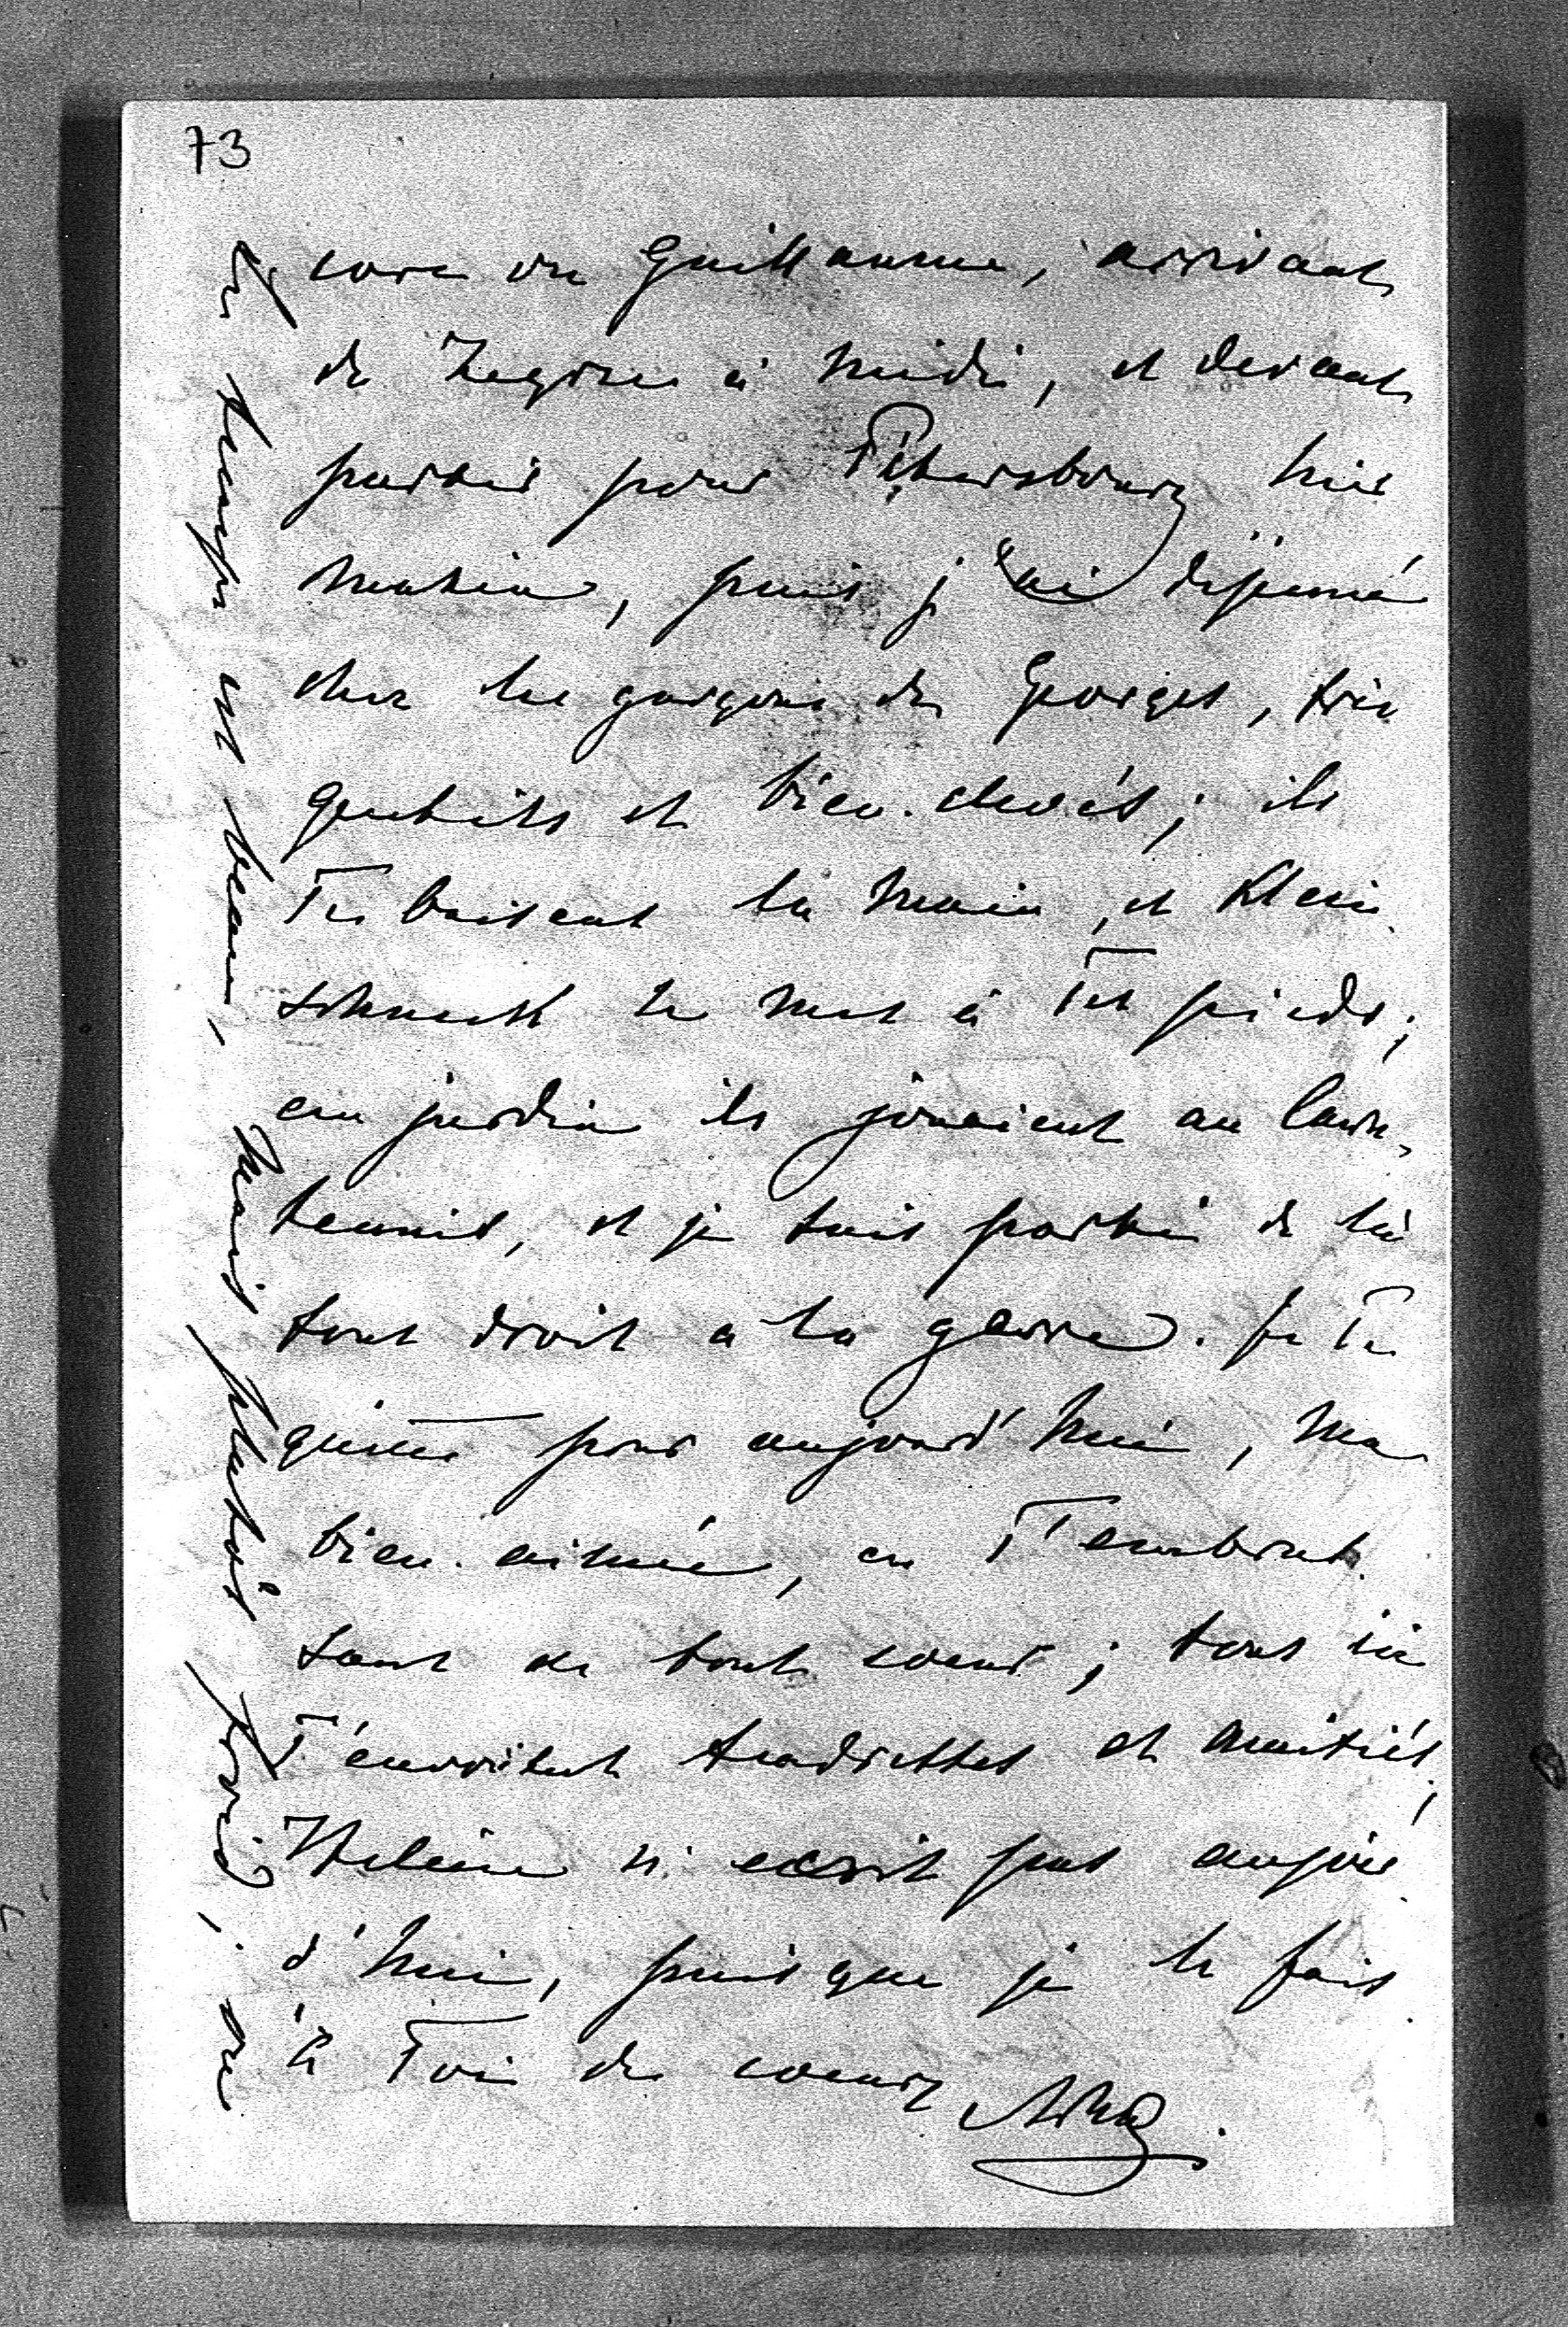 73
core vu Guillaume, arrivant
de Zegrze à midi, et devant
partir pour Pétersbourg hier
matin, puis j'ai déjeuné
chez les garçons de Georges, très
gentils et bien-élevés; ils
Te baisent la main, et Klein
schmidt se met à Tes pieds;
au jardin ils jouaient au lawn-
tennis, et je suis parti de là
tout droit à la gare. Je Te
quitte pour aujourd'hui, ma
bien-aimée, en T'embras-
sant de tout coeur; tous ici
T'envoient tendresses et amitiés;
Hélène n'écrit pas aujour-
d'hui, puisque je le fais.
à Toi de coeur
Le temps est beau, mais plutôt froid,